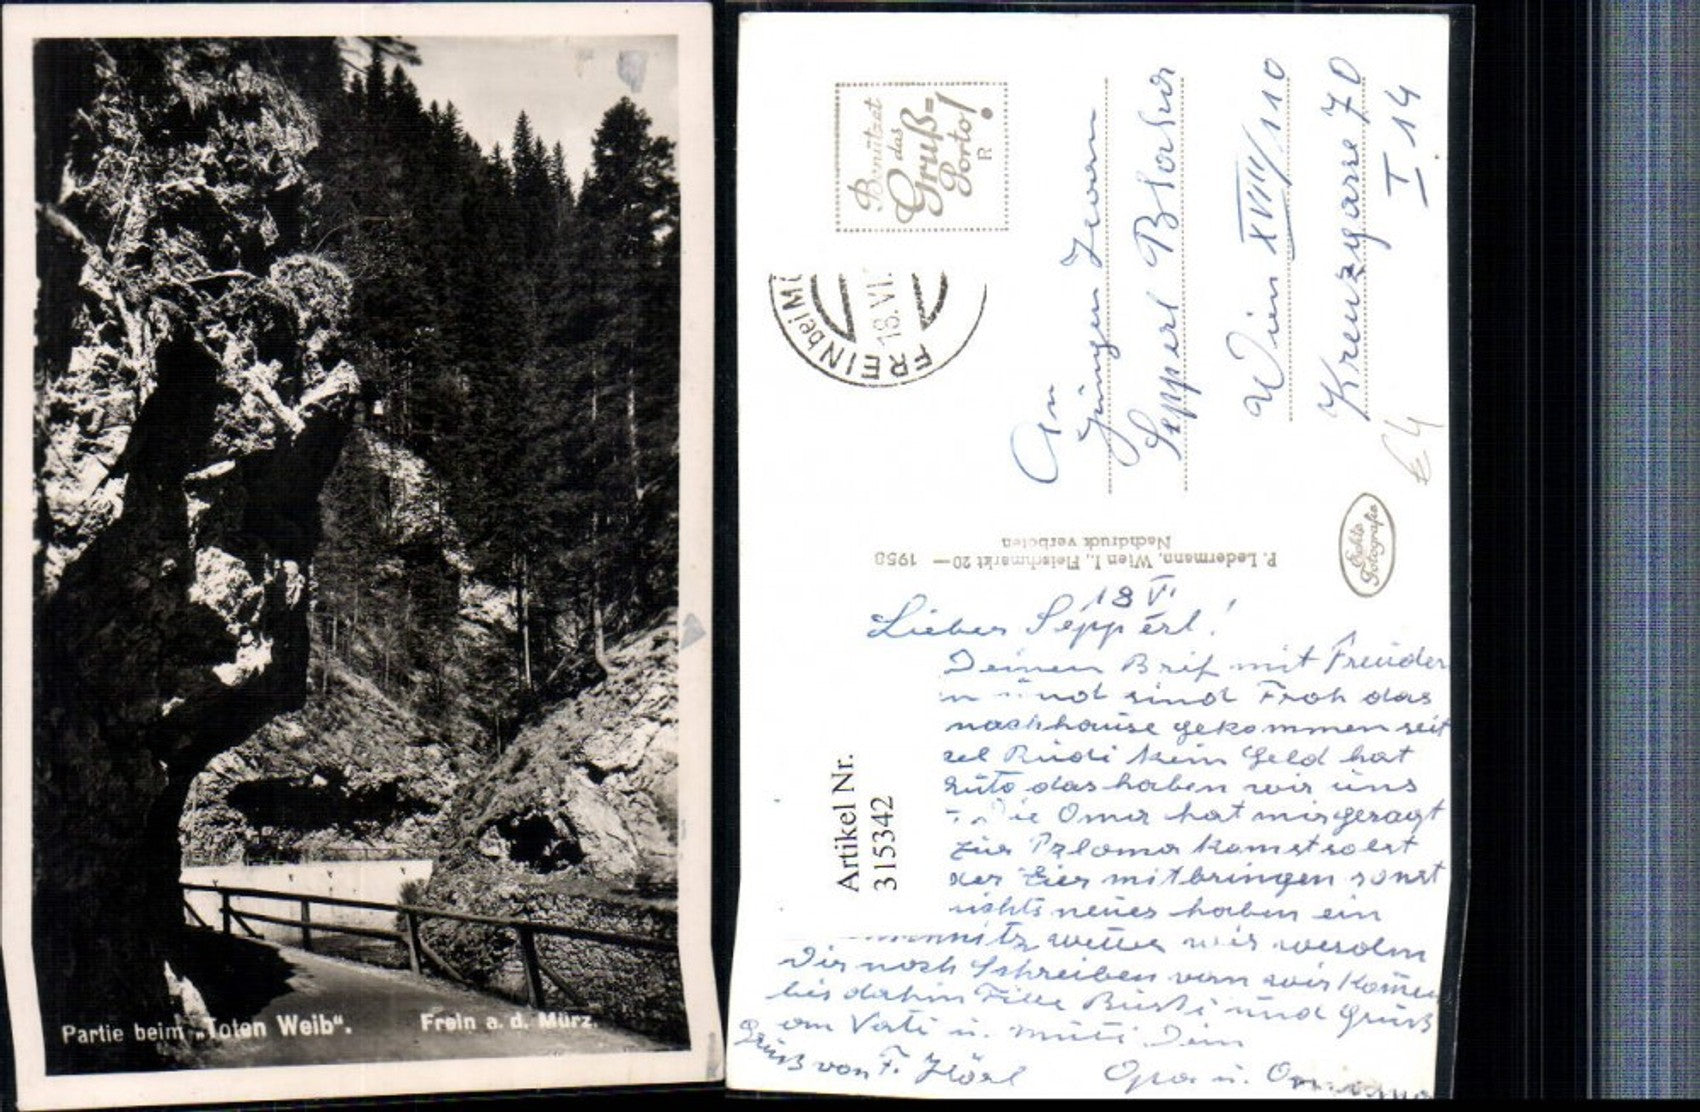 Partie beim „Toten Weib“.
Frein a. d. Mürz.
Benützet
das
Gruß=
Porto!
R
FREIN bei MÜ
18.VI.
An
Jungen Herrn
Sepperl
Wien XVIII/110
Kreuzgasse 70
I 14
€4
Echte
Fotografie
P. Ledermann, Wien I., Fleischmarkt 20 — 1958
Nachdruck verboten
Artikel Nr.
315342
18 VI
Lieber Sepperl!
Deinen Brif mit Freuden
und sind Froh das
nachhause gekommen seit
Rudi kein Geld hat
das haben wir uns
Die Oma hat mir gesagt
zur Paloma kamst solst
mitbringen sonst
nichts neues haben ein
wetter wir werden
Dir noch Schreiben wan wir komen
bis dahin File Bussi und Grüss
am Vati u. Mutti Dein
Opa u.
Grüss von F.